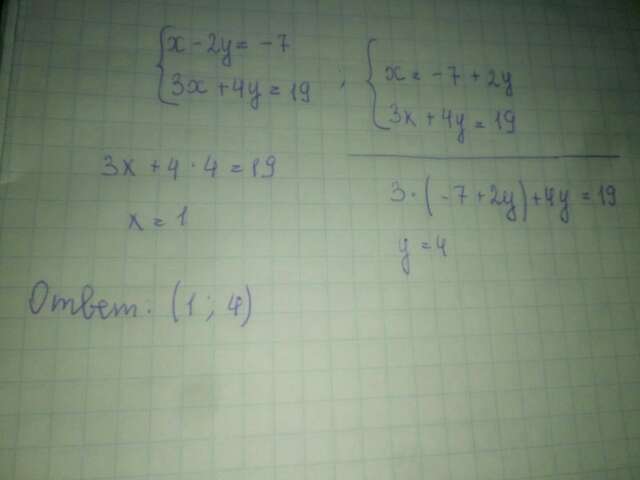 {x - 2y = -7
3x + 4y = 19 ;
{x = -7 + 2y
3x + 4y = 19
3 · (-7 + 2y) + 4y = 19
y = 4
3x + 4 · 4 = 19
x = 1
Ответ: (1 ; 4)